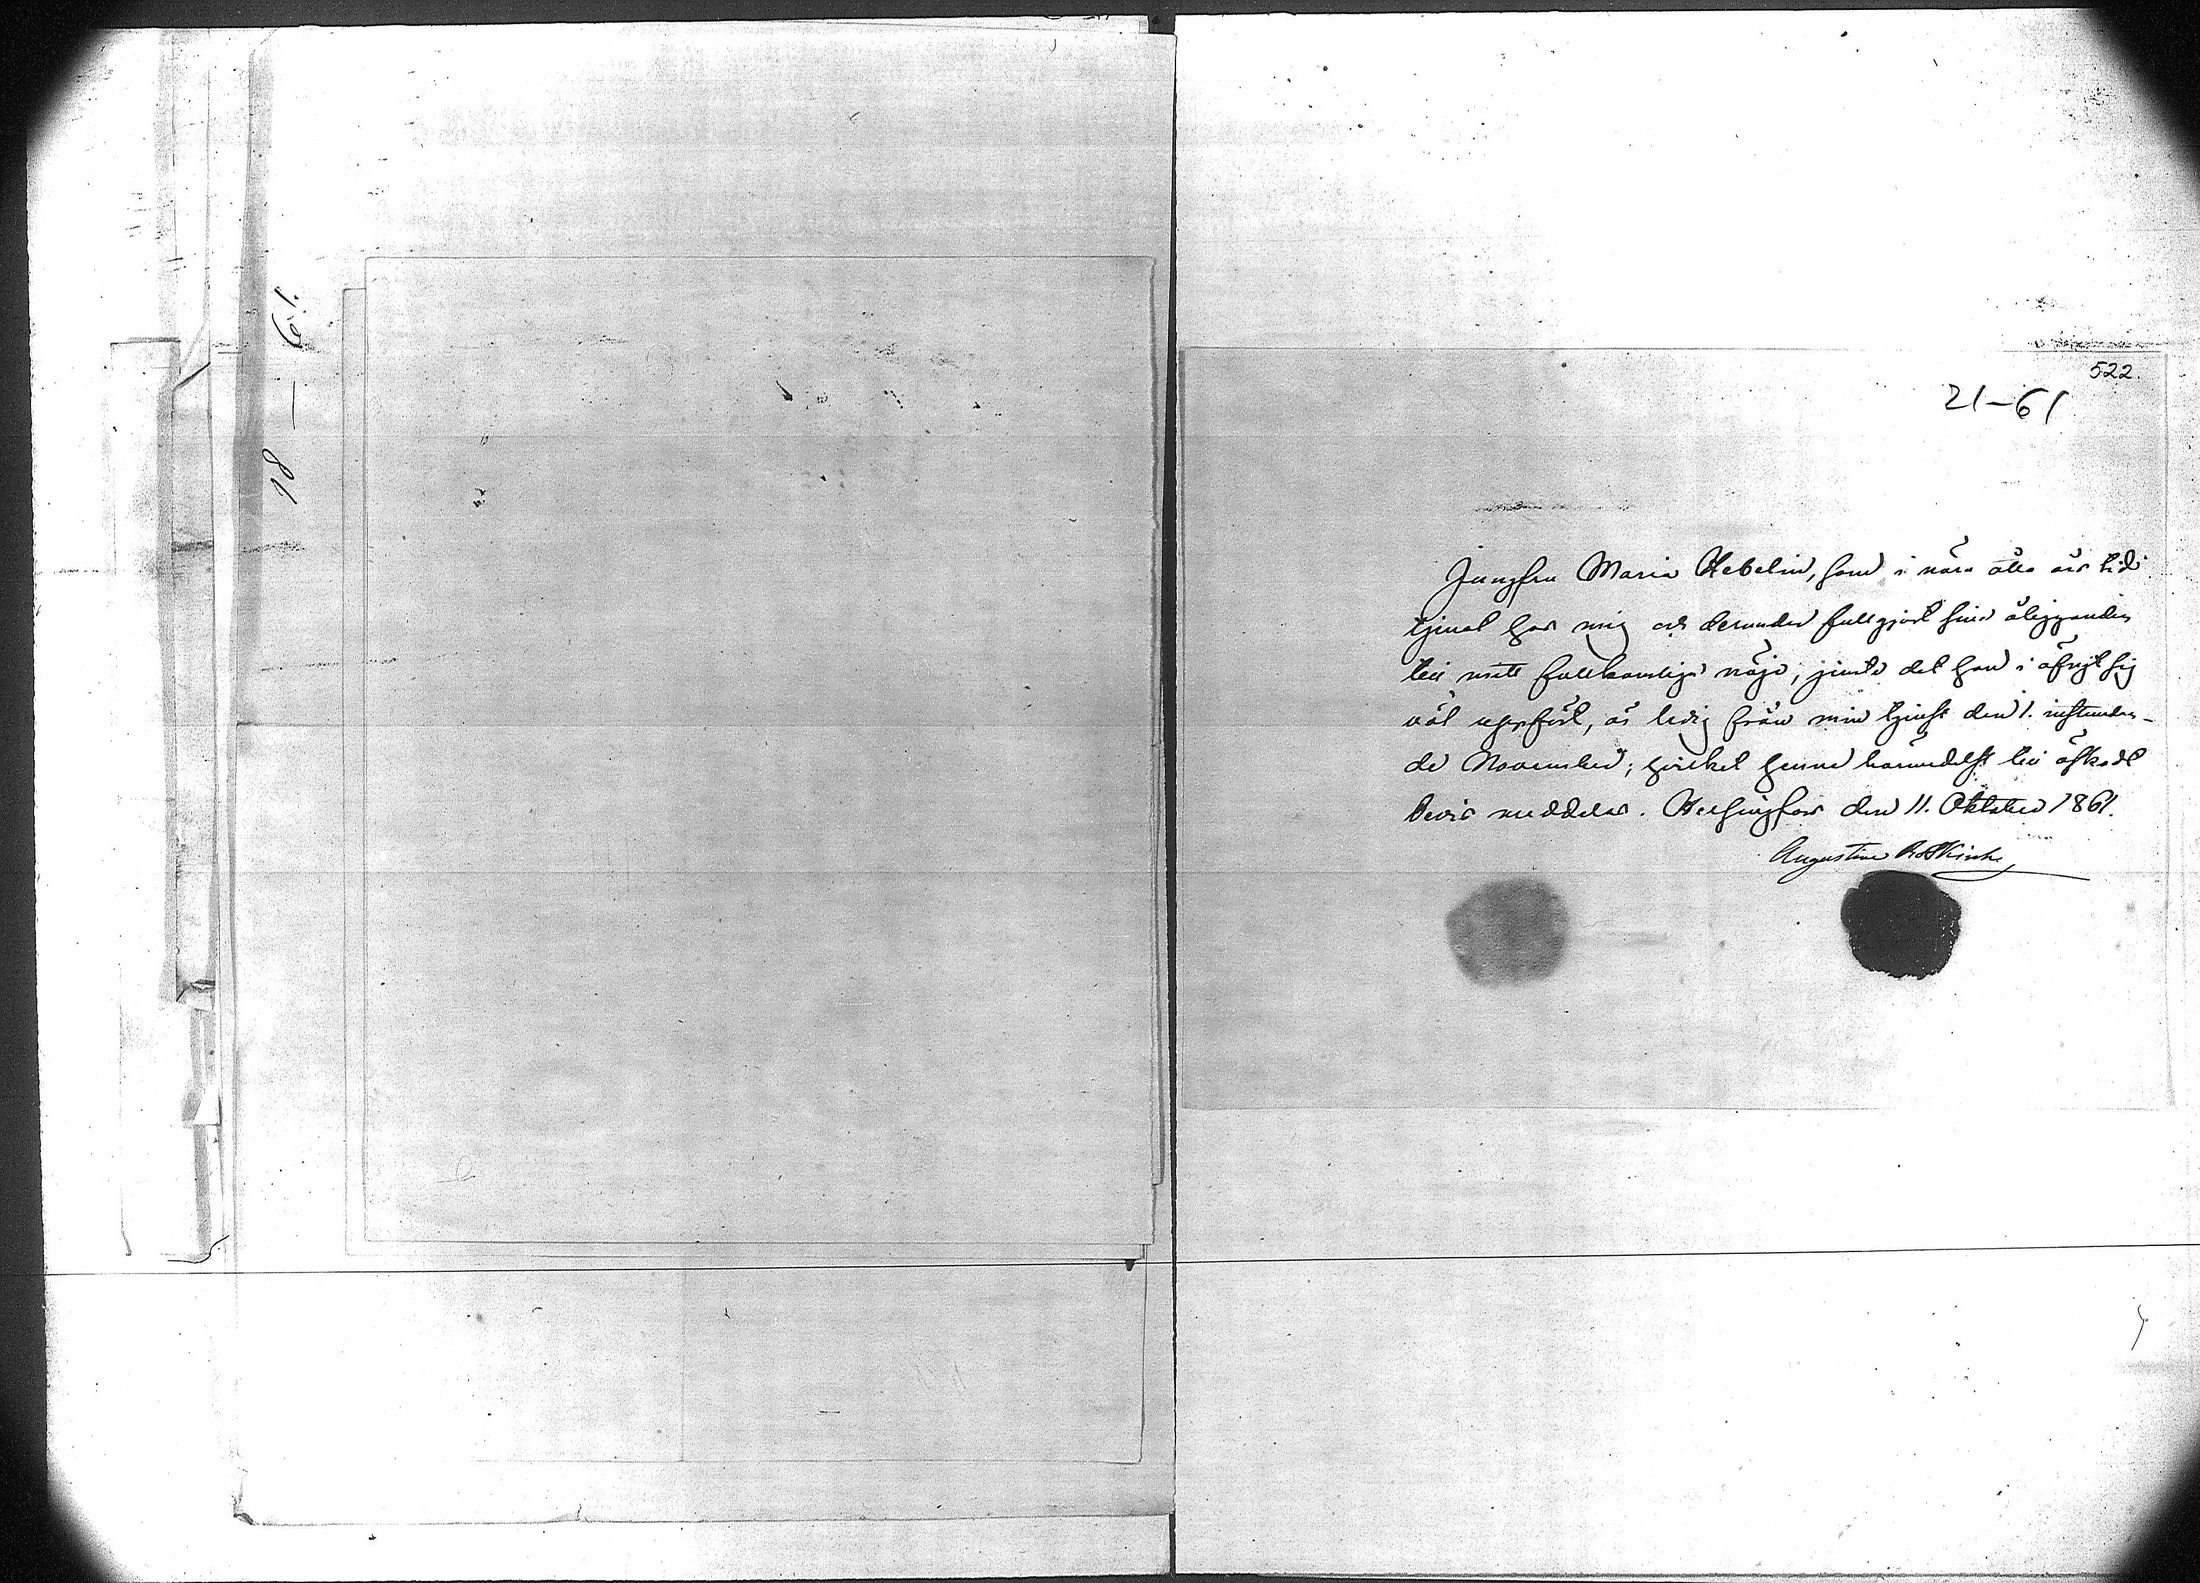 18 — 61.
522.
21–61
Jungfru Maria Hebelin, som i nära åtta års tid
tjenat hos mig och derunder fullgjort sine åligganden
till mitt fullkomliga nöje, jemte det hon i öfrigt sig
väl uppfört, är ledig från min tjenst den 1. instundan-
de November; hvilket henne härmedelst till äskadt
bevis meddelas. Helsingfors den 11. Oktober 1861.
Augustine Rotkirch